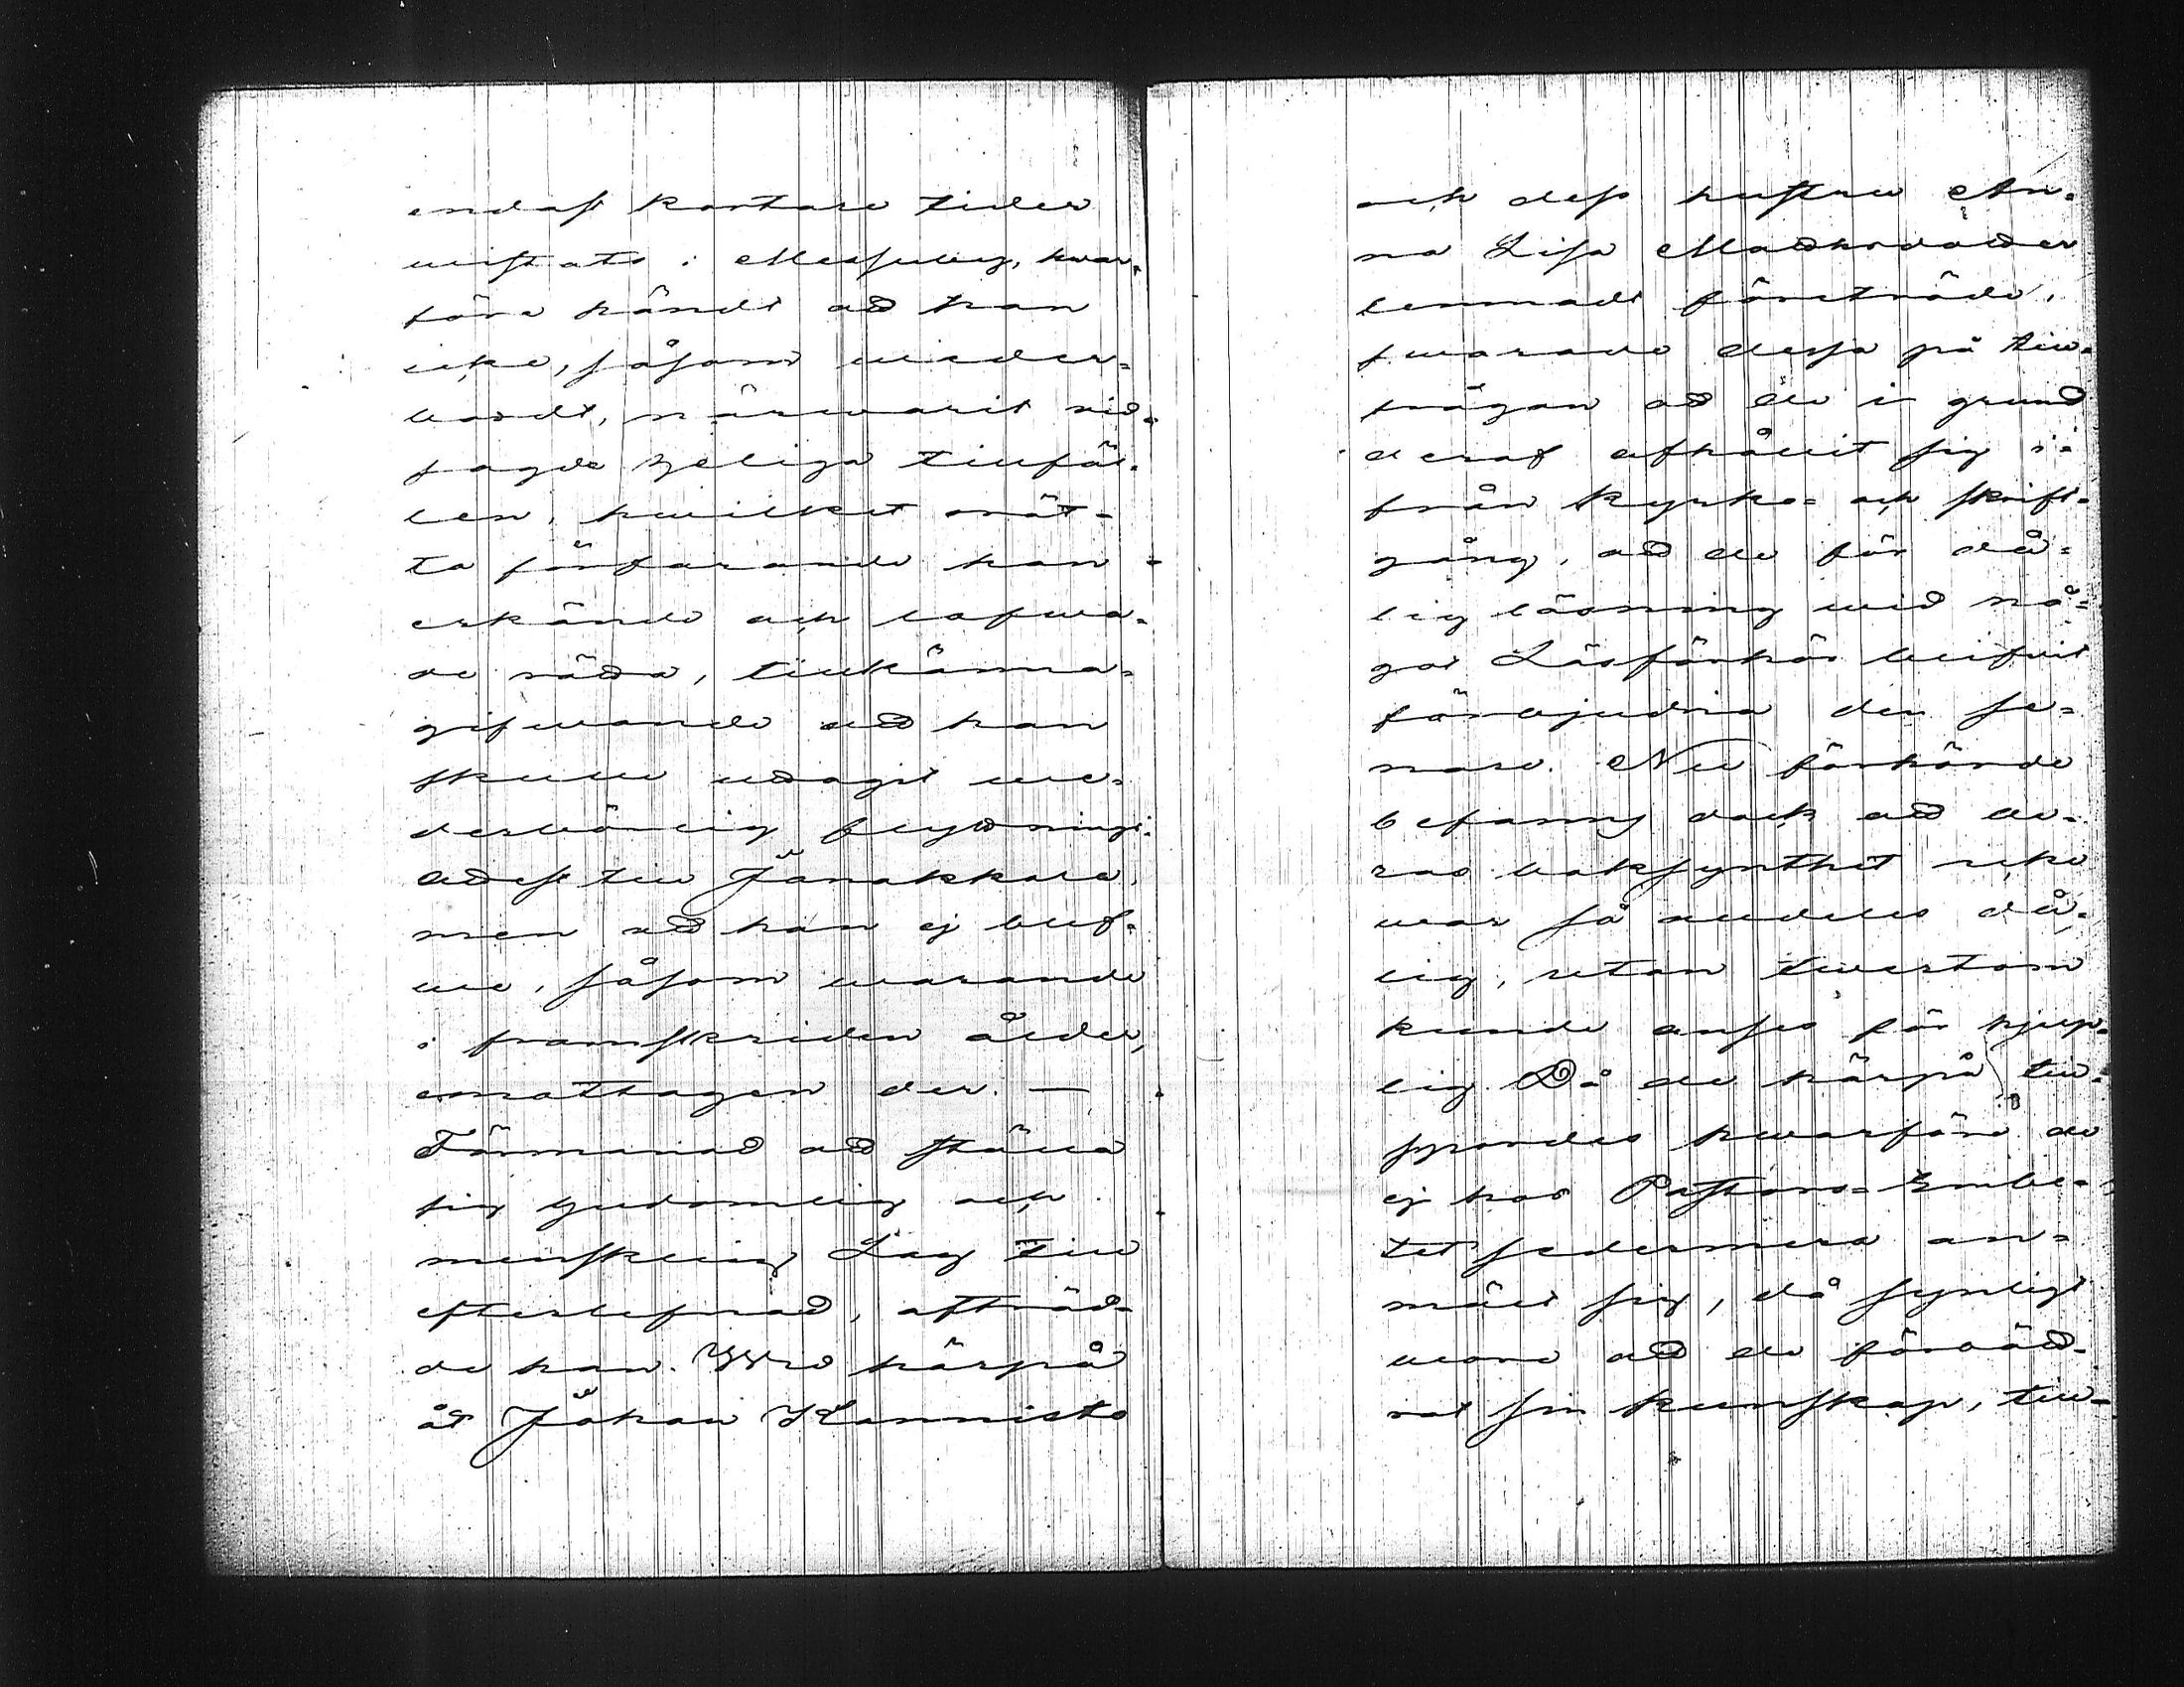 endast kortare tider
wistats i Messuby, hwar-
före händt att han
icke, såsom weder-
bordt, närwarit wid
sagde heliga tillfäl-
len, hwilket orät-
ta förfarande han
erkände och lofwa-
de rätta, tillkänna-
gifwande att han
skulle uttagit we-
derbörlig flyttnings-
attest till Janakkala,
men att han ej blif-
we, såsom warande
i framskriden ålder,
emottagen der. —
Förmanad att ställa
sig gudomlig och
menskelig Lag till
efterlefnad, afträd-
de han. Wro härpå
åt Johan Kannisto
och dess hustru An-
na Lisa Mattsdotter
lemnadt företräde,
swarade dessa på till-
frågan att de i grund
deraf afhållit sig i-
från kyrko- och skrift-
gång, att de för då-
lig läsning wid nå-
got Läsförhör blifwit
förbjudna den se-
nare. Nu förhörde
befanns dock att de-
ras boksynthet icke
war så alldeles då-
lig, utan twertom
kunde anses för hjelp-
lig. Då de härpå till-
spordes hwarföre de
ej hos Pastors-Embe-
tet sedermera an-
mält sig, då synligt
wore att de förbätt-
rat sin kunskap, till-